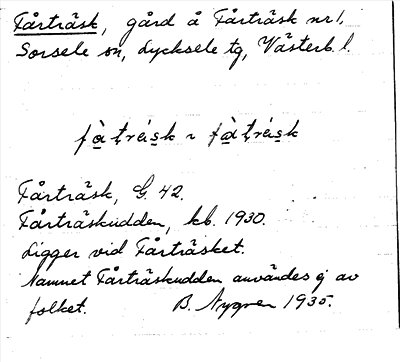 Fårträsk, gård å Fårträsk nr 1,
Sorsele sn, Lycksele tg, Västerb. l.
fà̱ţréi̱s̱k ~ fà̱ţréi̱s̱k
Fårträsk, G. 42.
Fårträskudden, kb. 1930.
Ligger vid Fårträsket.
Namnet Fårträskudden användes ej av
folket. B. Nygren 1935.